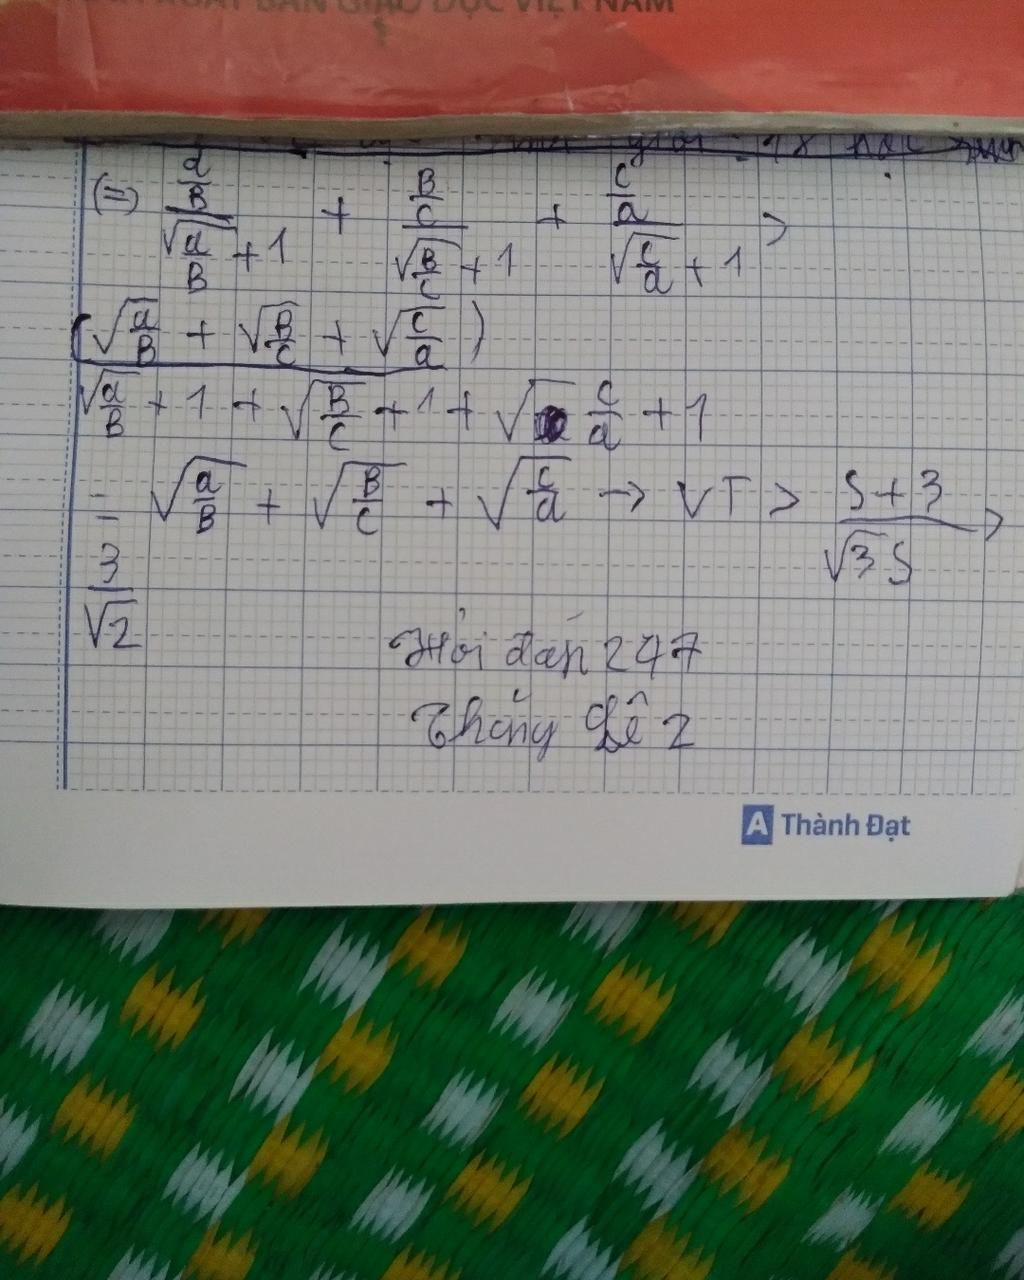 XUẤT BẢN GIÁO DỤC VIỆT NAM
(=) \frac{\frac{a}{B}}{\sqrt{\frac{a}{B}}+1} + \frac{\frac{B}{C}}{\sqrt{\frac{B}{C}}+1} + \frac{\frac{C}{a}}{\sqrt{\frac{C}{a}}+1} >
\frac{(\sqrt{\frac{a}{B}} + \sqrt{\frac{B}{C}} + \sqrt{\frac{C}{a}})}{\sqrt{\frac{a}{B}} + 1 + \sqrt{\frac{B}{C}} + 1 + \sqrt{\frac{C}{a}} + 1}
= \sqrt{\frac{a}{B}} + \sqrt{\frac{B}{C}} + \sqrt{\frac{C}{a}} → VT > \frac{S+3}{\sqrt{3}S} >
\frac{3}{\sqrt{2}}
Hỏi đáp 247
A Thành Đạt